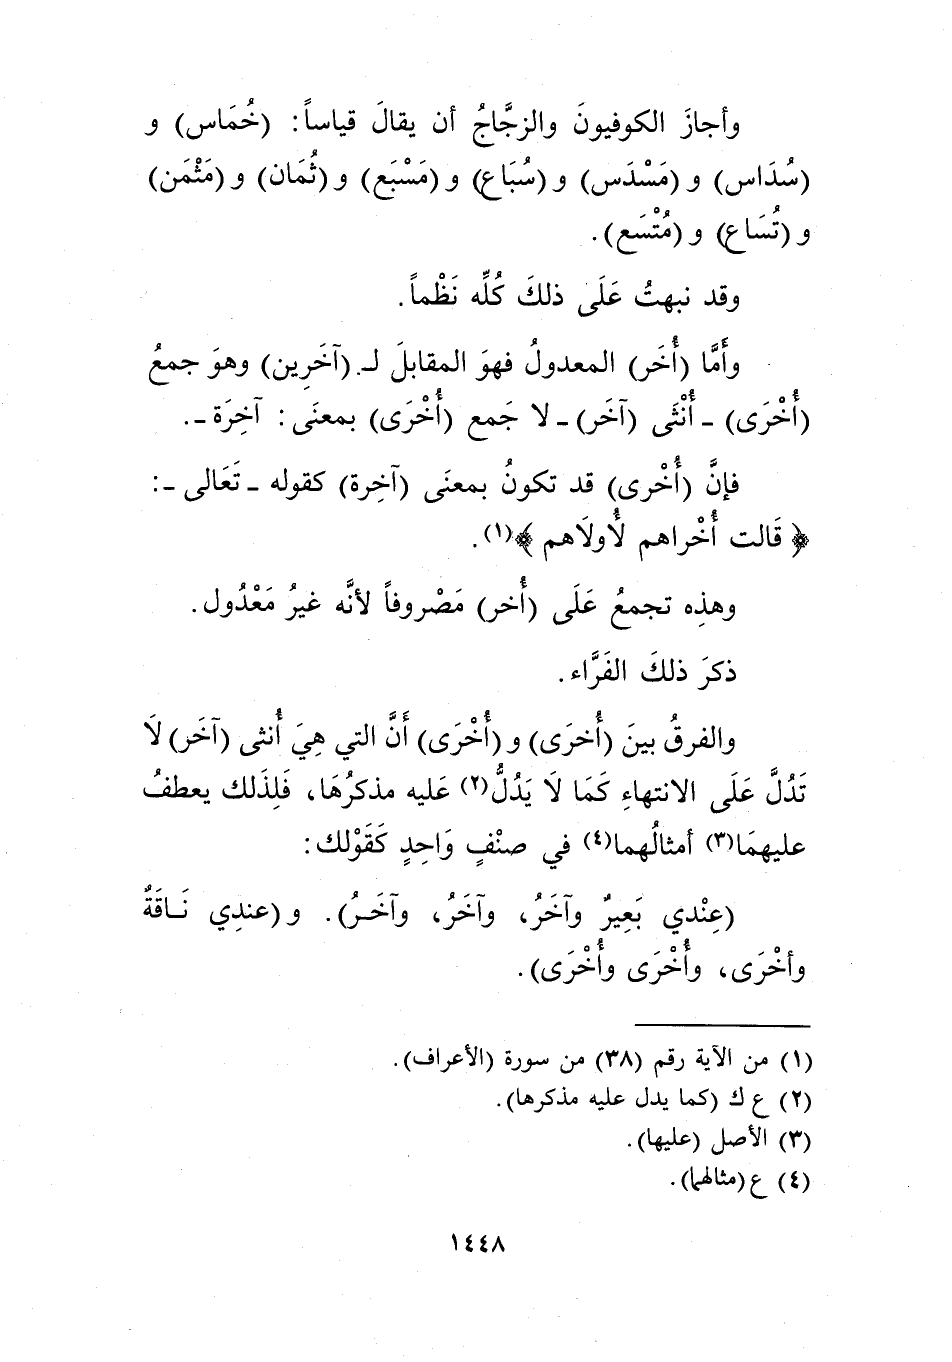 وأجازَ الكوفيونَ والزجَّاجُ أن يقالَ قياساً: (خُمَاس) و
(سُدَاس) و (مَسْدَس) و (سُبَاع) و (مَسْبَع) و (ثُمَان) و (مَثْمَن)
و (تُسَاع) و (مُتْسَع).
وقد نبهتُ عَلَى ذلكَ كُلِّه نَظْماً.
وأَمَّا (أُخَر) المعدولُ فهوَ المقابلَ لـ (آخَرِين) وهوَ جمعُ
(أُخْرَى) ـ أُنْثَى (آخَر) ـ لا جَمع (أُخْرَى) بمعنَى: آخِرَة ـ.
فإنَّ (أُخْرى) قد تكونُ بمعنَى (آخِرة) كقوله ـ تَعَالى ـ:
﴿ قَالت أُخْراهم لأُولاَهم ﴾(١).
وهذِه تجمعُ عَلَى (أُخر) مَصْروفاً لأنَّه غيرُ مَعْدُول.
ذكرَ ذلكَ الفَرَّاء.
والفرقُ بينَ (أُخرَى) و (أُخْرَى) أَنَّ التي هِيَ أُنثى (آخَر) لَا
تَدُلَّ عَلَى الانتهاءِ كَمَا لَا يَدُلُّ(٢) عَليه مذكرُهَا، فَلِذَلك يعطفُ
عليهمَا(٣) أمثالُهما(٤) في صنْفٍ وَاحِدٍ كَقَوْلك:
(عِنْدي بَعِيرٌ وآخَرُ، وآخَرُ، وآخَـرُ). و (عندِي نَـاقَةٌ
وأخْرَى، وأُخْرَى وأُخْرَى).
(١) من الآية رقم (٣٨) من سورة (الأعراف).
(٢) ع ك (كما يدل عليه مذكرها).
(٣) الأصل (عليها).
(٤) ع (مثالهما).
١٤٤٨